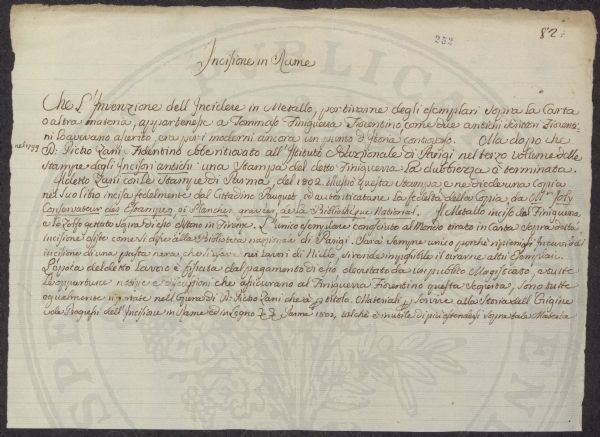 252
82
Incisione in Rame
Che L'Invenzione dell'Incidere in Metallo, per tirarne degli esemplari sopra la Carta
o altra materia, appartenesse a Tommaso Finiguerra Fiorentino come due antichi Fiorenti=
ni era per i moderni ancora un punto d' Dopo che
nel 1799
D. Pietro Zani Fidentino ebbe ritrovato all' Nazionale di Parigi nel terzo volume delle
Stampe degli Incisori antichi una Stampa del detto Finiguerra la dubbiezza è terminata.
Il detto Zani con le Stampe di Parma, del 1802. questa Stampa e ne diede una Copia
nel suo libro incisa fedelmente dal Cittadino ed autenticarne la fedeltà della Copia da
Conservateur des Estampes et Planches gravées, de la Bibliothèque National. Il Metallo inciso dal Finiguerra
e lo Zolfo gettato sopra di esso esistono in Firenze. L'unico esemplare conosciuto al Mondo tirato in Carta sopra detta
incisione esiste come si disse alla Biblioteca nazionale di Parigi. Sarà sempre unico perchè
incisione di una pasta nera, che si usava nei lavori di Niello, si rende impossibile il tirarne altri Esemplari.
L'epoca del detto Lavoro è fissata dal pagamento di esso decretato da un publico Magistrato, e tutte
le opportune notizie e che assicurano al Finiguerra Fiorentino questa scoperta, sono tutte
egualmente riportate nell'Opera di D. Pietro Zani che à per titolo. Materiali per servire alla Storia dell'Origine
e de Progressi dell'Incisione in Rame ed in Legno Parma 1802, talchè è inutile di più estendersi sopra tale Materia